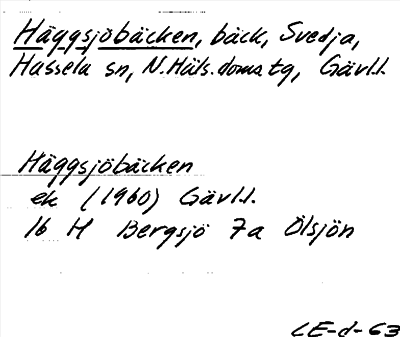 Häggsjöbäcken, bäck, Svedja,
Hassela sn, N.Häls.doms.tg, Gävl.l.
Häggsjöbäcken
ek (1960) Gävl.l.
16 H Bergsjö 7a Ölsjön
LE-d-63